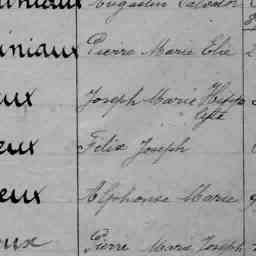 Augustin
iniaux Pierre Marie Elie
eux Joseph Marie Hippo
lyte
eux Félix Joseph
eux Alphonse Marie
eux Pierre Marie Joseph